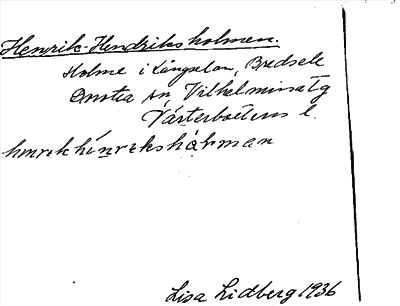 Henrik-Hendriksholmen.
Holme i Långselån, Bredsele
Anstea sn, Vilhelmina tg
Västerbottens l.
hnrɩk hínrɩkshåɫman
Lisa Lidberg 1936